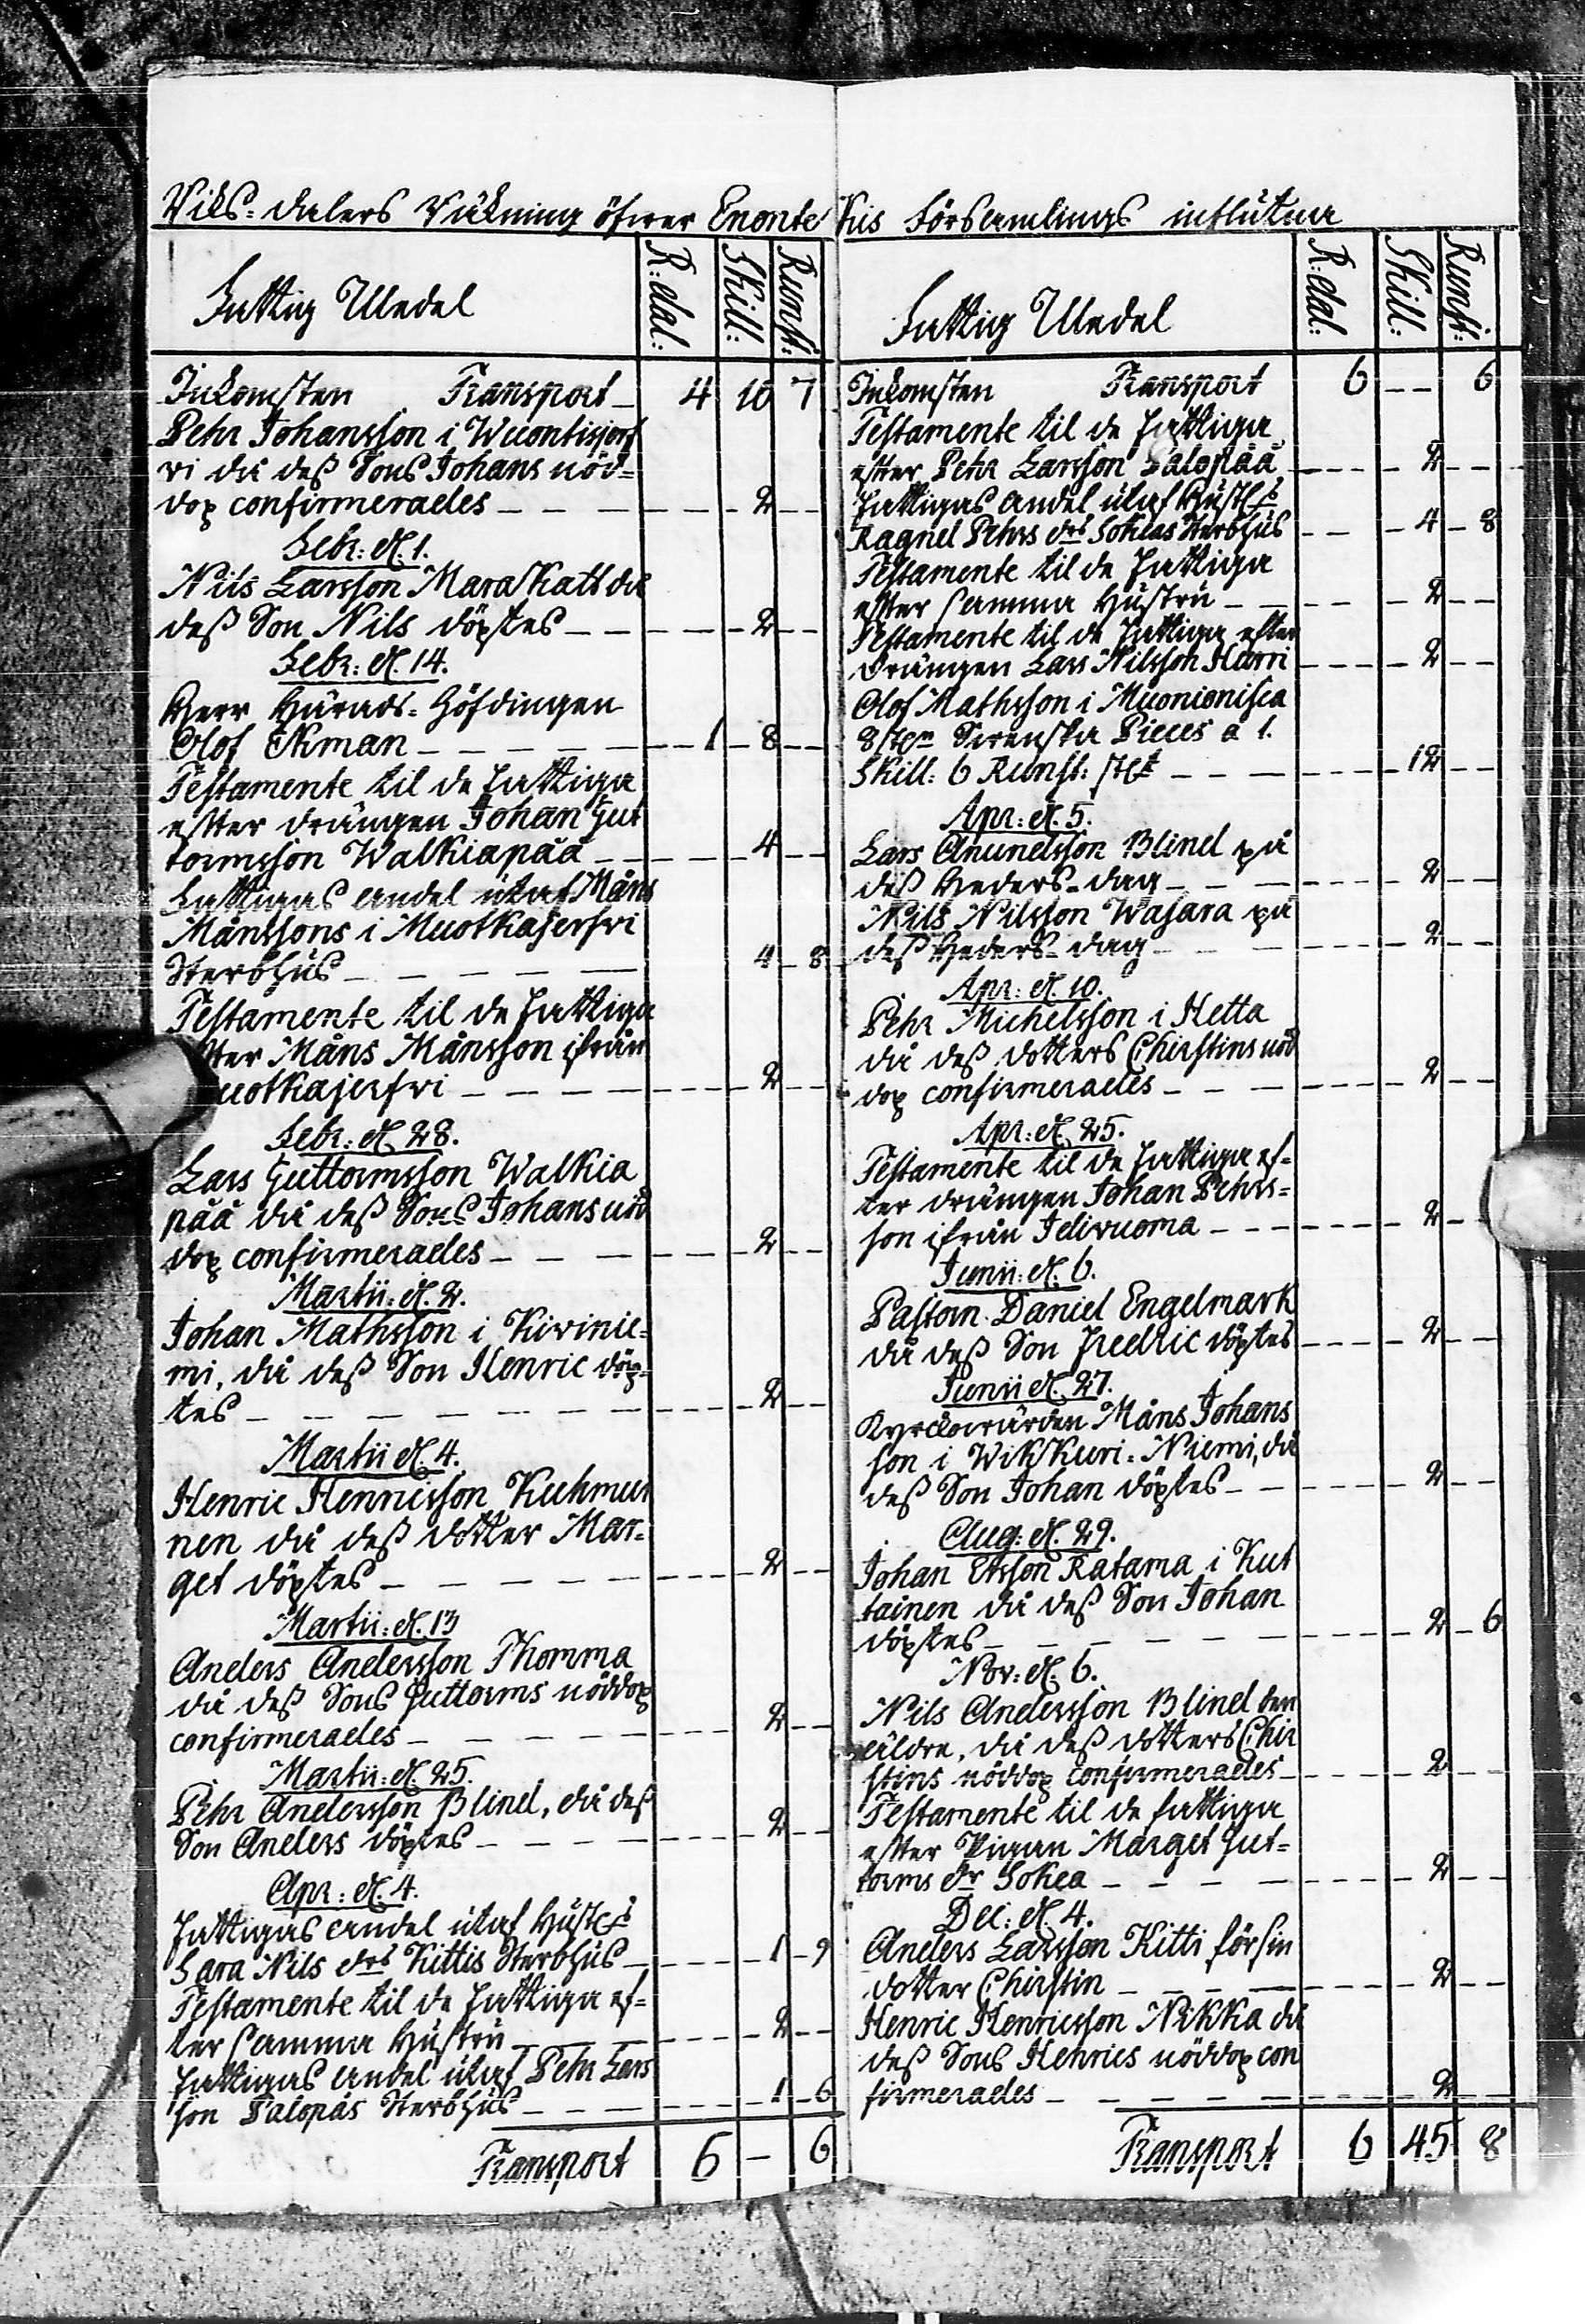 Riks-dalers Räkning öfwer Enonte Kis Församlings influtna
Fattig Medel
R:dal:
Skill:
Runst:
Inkomsten Transport 4 10 7
Pehr Johansson i Wuontisjerf
wi då deß Sons Johans nöd-
dop confirmerades 2
Febr: d. 1.
Nils Larsson Maraskatt då
deß Son Nils döptes 2
Febr: d. 14.
Herr Härads-Höfdingen
Olof Ekman 1 8
Testamente til de Fattiga
efter drängen Johan Gut
tormsson Walkiapää 4
Fattigas andel utaf Måns
Månssons i Muotkajerfwi
Sterbhus 4 8
Testamente til de Fattiga
efter Måns Månsson ifrån
Muotkajerfwi 2
Febr: d. 28.
Lars Guttormsson Walkia
pää då deß Sons Johans nöd
dop confirmerades 2
Martii: d. 2.
Johan Mathsson i Kiwinie-
mi, då deß Son Henric döp-
tes 2
Martii d. 4.
Henric Henricsson Kuhmui
nen då deß dotter Mar-
get döptes 2
Martii: d. 13
Anders Andersson Thomma
då deß Sons Guttorms nöddop
confirmerades 2
Martii: d. 25.
Pehr Andersson Blind, då deß
Son Anders döptes 2
Apr: d. 4.
Fattigas andel utaf Hustrs
Sara Nils drs Kittis Sterbhus 1 9
Testamente til de Fattiga ef-
ter samma Hustru 2
Fattigas andel utaf Pehr Lars
son Palopäs Sterbhus 1 6
Transport 6 - 6
Fattig Medel
R:dal:
Skill:
Runst:
Inkomsten Transport 6 -- 6
Testamente til de Fattiga
efter Pehr Larsson Palopää 2
Fattigas andel utaf Hustrs
Ragnel Pehrs drs Sokeas Sterbhus 4 8
Testamente til de Fattiga
efter samma Hustru 2
Testamente til de Fattiga efter
drängen Lars Nilsson Harri 2
Olof Mathsson i Muonionisca
8 stn Swenska Pieces a 1.
Skill: 6 Runst: stt 12
Apr: d. 5.
Lars Anundsson Blind på
deß Heders-dag 2
Nils Nilsson Wasara på
deß Heders-dag 2
Apr: d. 10.
Pehr Michelsson i Hetta
då deß dotters Chirstins nöd
dop confirmerades 2
Apr: d. 25.
Testamente til de Fattiga ef-
ter drängen Johan Pehrs-
son ifrån Idiwuoma 2
Junii: d. 6.
Pastorn Daniel Engelmark
då deß Son Fredric döptes 2
Junii d. 27.
Kyrckowärden Måns Johans
son i Wikkuri-Niemi, då
deß Son Johan döptes 2
Aug: d. 29.
Johan Ersson Ratama i Kut
tainen då deß Son Johan
döptes 2 6
Nov: d. 6.
Nils Andersson Blind den
äldre, då deß dotters Chir
stins nöddop confirmerades 2
Testamente til de fattiga
efter Pigan Marget Gut-
torms dr Sokea 2
Dec: d. 4.
Anders Larsson Kitti för sin
dotter Chirstin 2
Henric Henricsson Nikka då
deß Sons Henrics nöddop con
firmerades 2
Transport 6 45 8